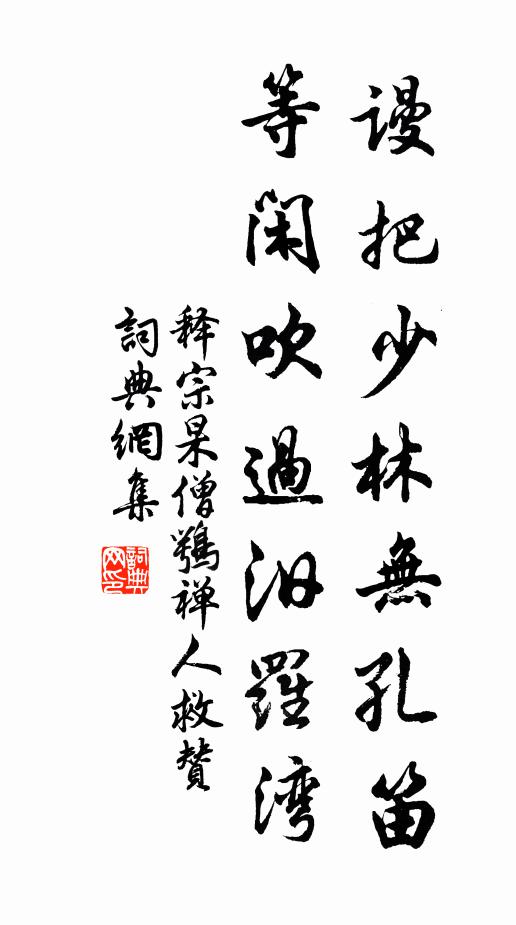 谩把少林無孔笛
等閑吹過汨羅湾
释宗杲僧鶚禅人救赞
詞典網集
詞典网印